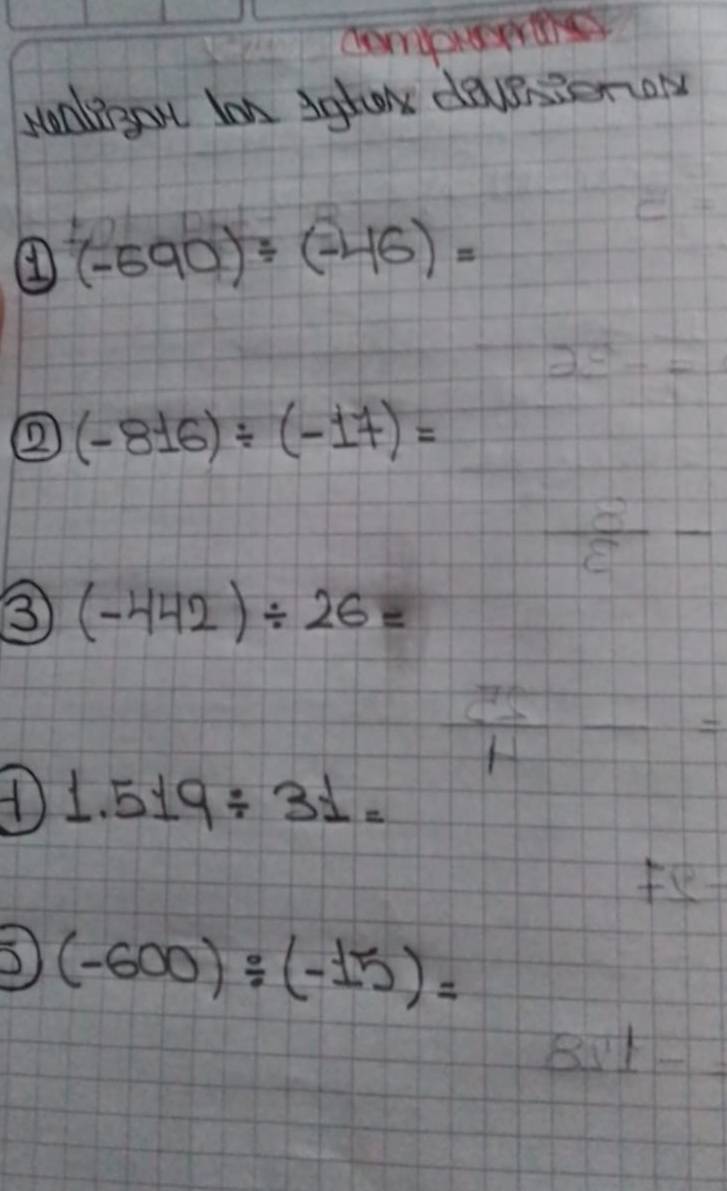 compromiso
realizar las sgtes divisiones
① (-690) ÷ (-46) =
② (-816) ÷ (-17) =
③ (-442) ÷ 26 =
④ 1.519 ÷ 31 =
⑤ (-600) ÷ (-15) =